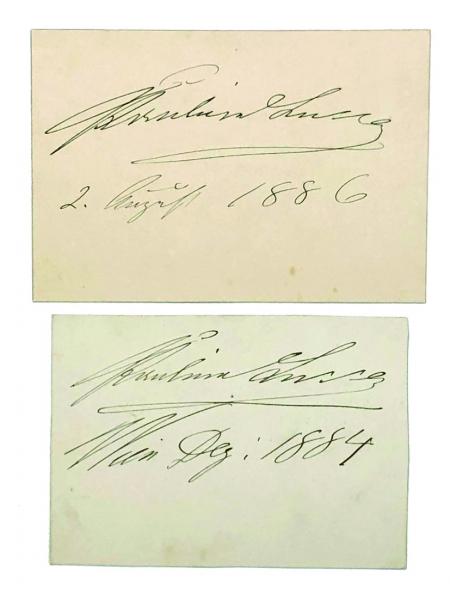 Paulina Lucca
2. August 1886
Paulina Lucca
Wien Dez: 1884